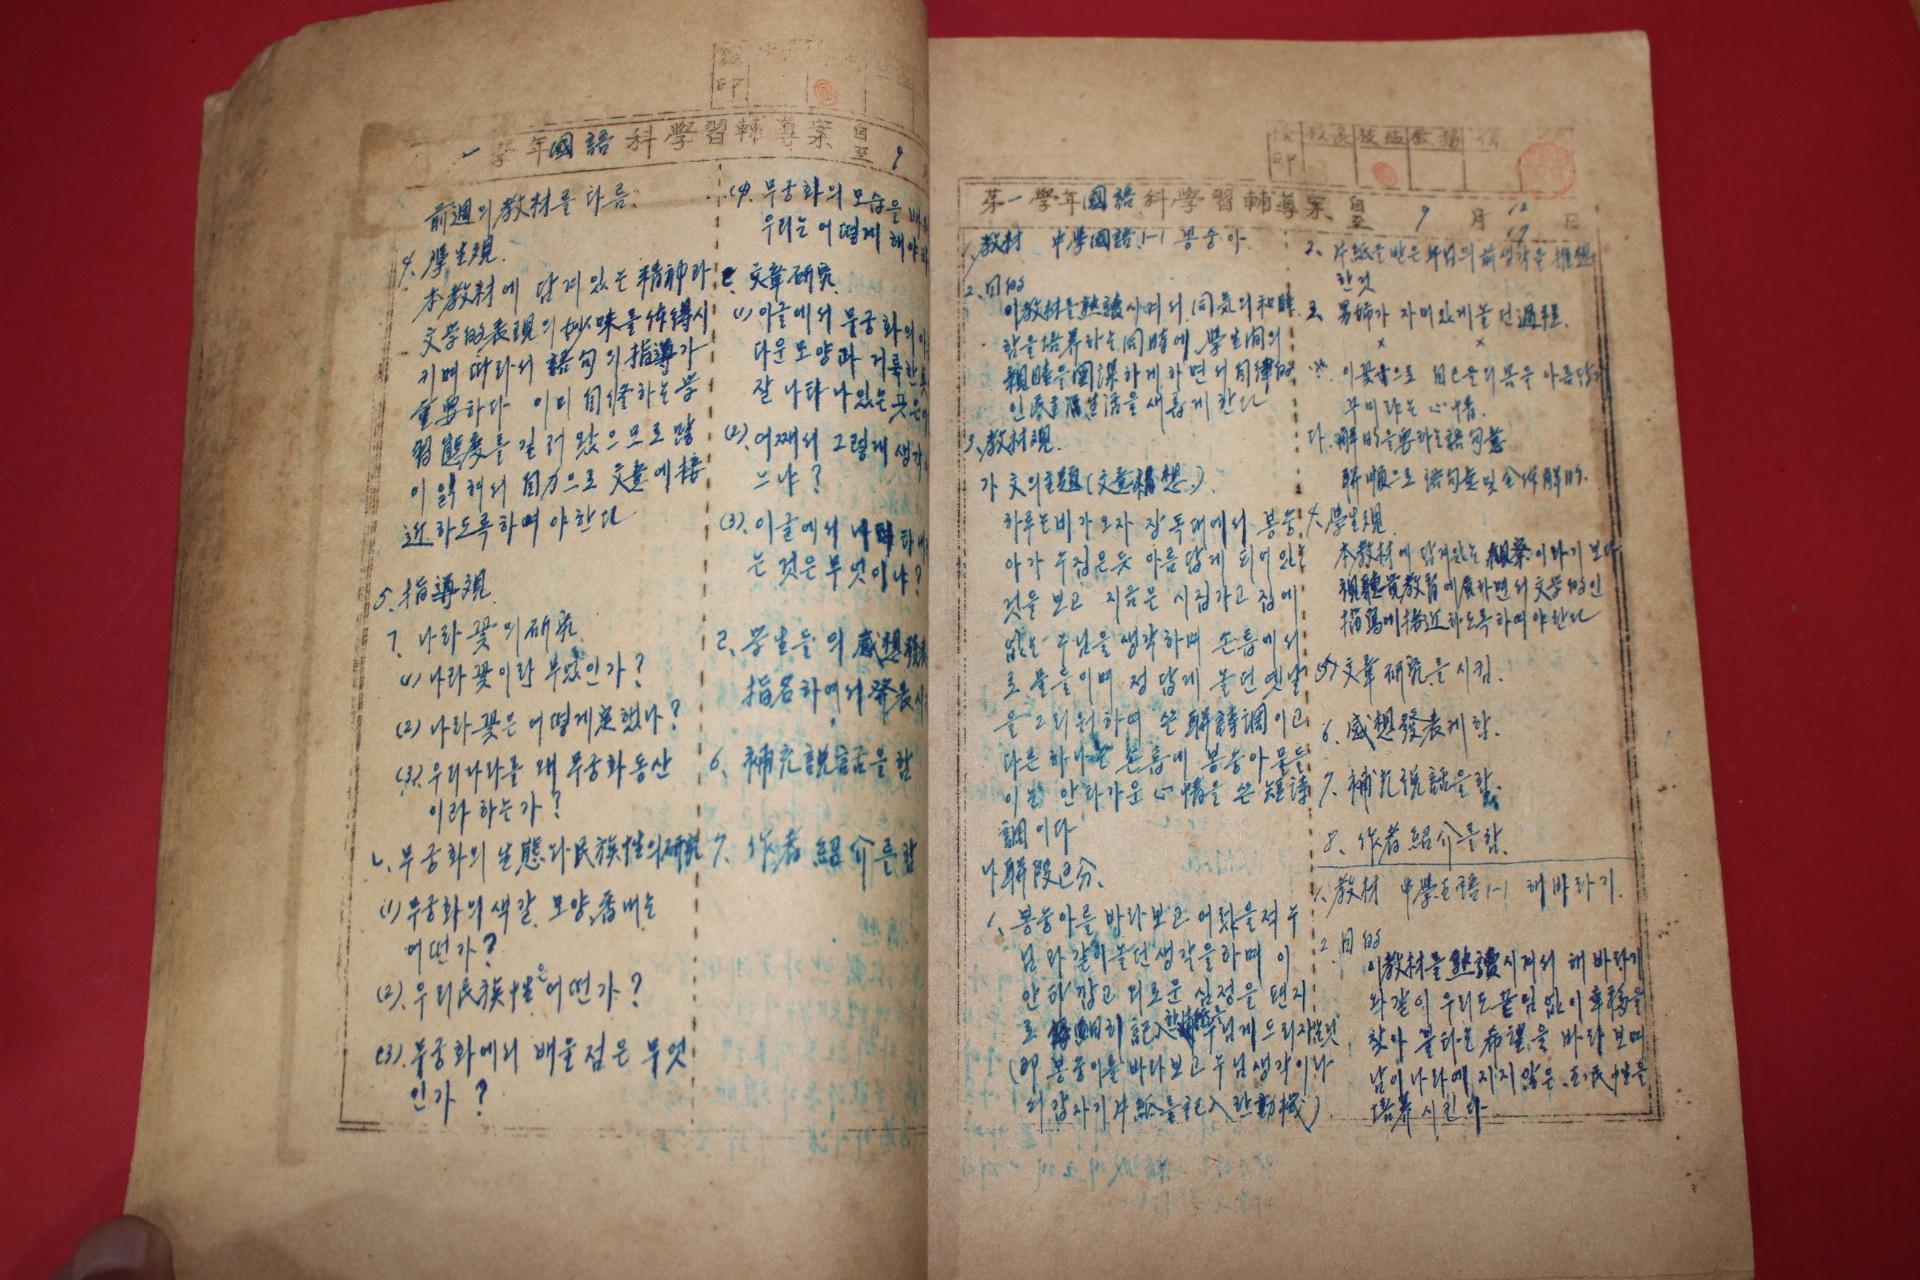 一 學年 國語 科學習輔導案 自 至 9
前週의 教材를 다룸.
4. 學生観.
本教材에 담겨있는 精神과
文学的表現의 妙味를 体得시
키며 따라서 語句의 指導가
重要하다 이미 自
習態度를 길러 왔으므로 많
이 읽혀서 自力으로 文章에 接
近하도록하여야 한다
5. 指導観.
ㄱ. 나라꽃의 研究.
(1) 나라꽃이란 무엇인가?
(2) 나라꽃은 어떻게 定했나?
(3). 우리나라를 왜 무궁화동산
이라 하는가?
ㄴ. 무궁화의 生態와 民族性의 研究
(1) 무궁화의 색갈. 모양. 香내는
어떤가?
(2). 우리民族性은 어떤가?
(3). 무궁화에서 배울점은 무엇
인가?
(4). 무궁화의 모습을
우리는 어떻게 해야
文章研究.
(1) 이글에서 무궁화의 아
다운 모양과 거룩한
잘 나타나 있는 곳은
(2). 어째서 그렇게 생각
느냐?
(3). 이글에서 나타내
는 것은 무엇이냐?
ㄹ. 学生들의 感想發表
指名하여서 発表시
6. 補充説話을 함
7. 作者紹介를 함
印
第一學年 國語 科學習輔導案 自 至 9 月 12 17 日
1. 教材 中學國語 1-1 봉숭아.
2. 目的
이教材를 熟讀시켜서 同気의 和睦
함을 培养하는 同時에 学生间의
親睦을 圖謀하게 하면서 自律的
인 民主 生活을 새롭게 한다
3. 教材観.
가 文의 主題 (文章構想).
하루는 비가 오자 장독대에서 봉숭
아가 우짖은듯 아름답게 피어있는
것을 보고 지금은 시집가고 집에
없는 누님을 생각하며 손톱에서
로 물들이며 정답게 놀던 옛날
을 그리워하며 쓴 聯詩調이고
다른 하나는 손톱에 봉숭아 물들
이는 안타가운 心情을 쓴 短詩
調이다
나 聯段区分.
1. 봉숭아를 바라보고 어렸을적 누
님과 같이 놀던 생각을하며 이
안타깝고 외로운 심정을 편지
로 細히 記入 누님께 드리자는 뜻
봉숭아를 바라보고 누님생각이나
紙를 記入한 動機)
2. 片紙을 받은 누님의 前생각을 推想
한것
3. 男姉가 자미있게 놀던 過程.
※. 이꽃남으로 自己들의 몸을 아름답게
꾸미려는 心情.
다. 解的을 要하는 語句等
聯順으로 語句等 및 全体解的.
4. 學生観
本教材에 담겨있는 観察이라기 보다
視聽覚教育에 하면서 文学的인
에 接近하도록하여야 한다
5) 文章研究를 시킴.
6. 感想發表케함.
7. 補充説話을 함.
8. 作者紹介를함.
1. 教材 中學国語 1-1 해바라기.
2. 目的
이教材를 熟讀시켜서 해바라기
와같이 우리도 끝임없이 幸福을
찾아 불타는 希望을 바라보며
남이나라에 지지않은 国民性을
培养시킨다